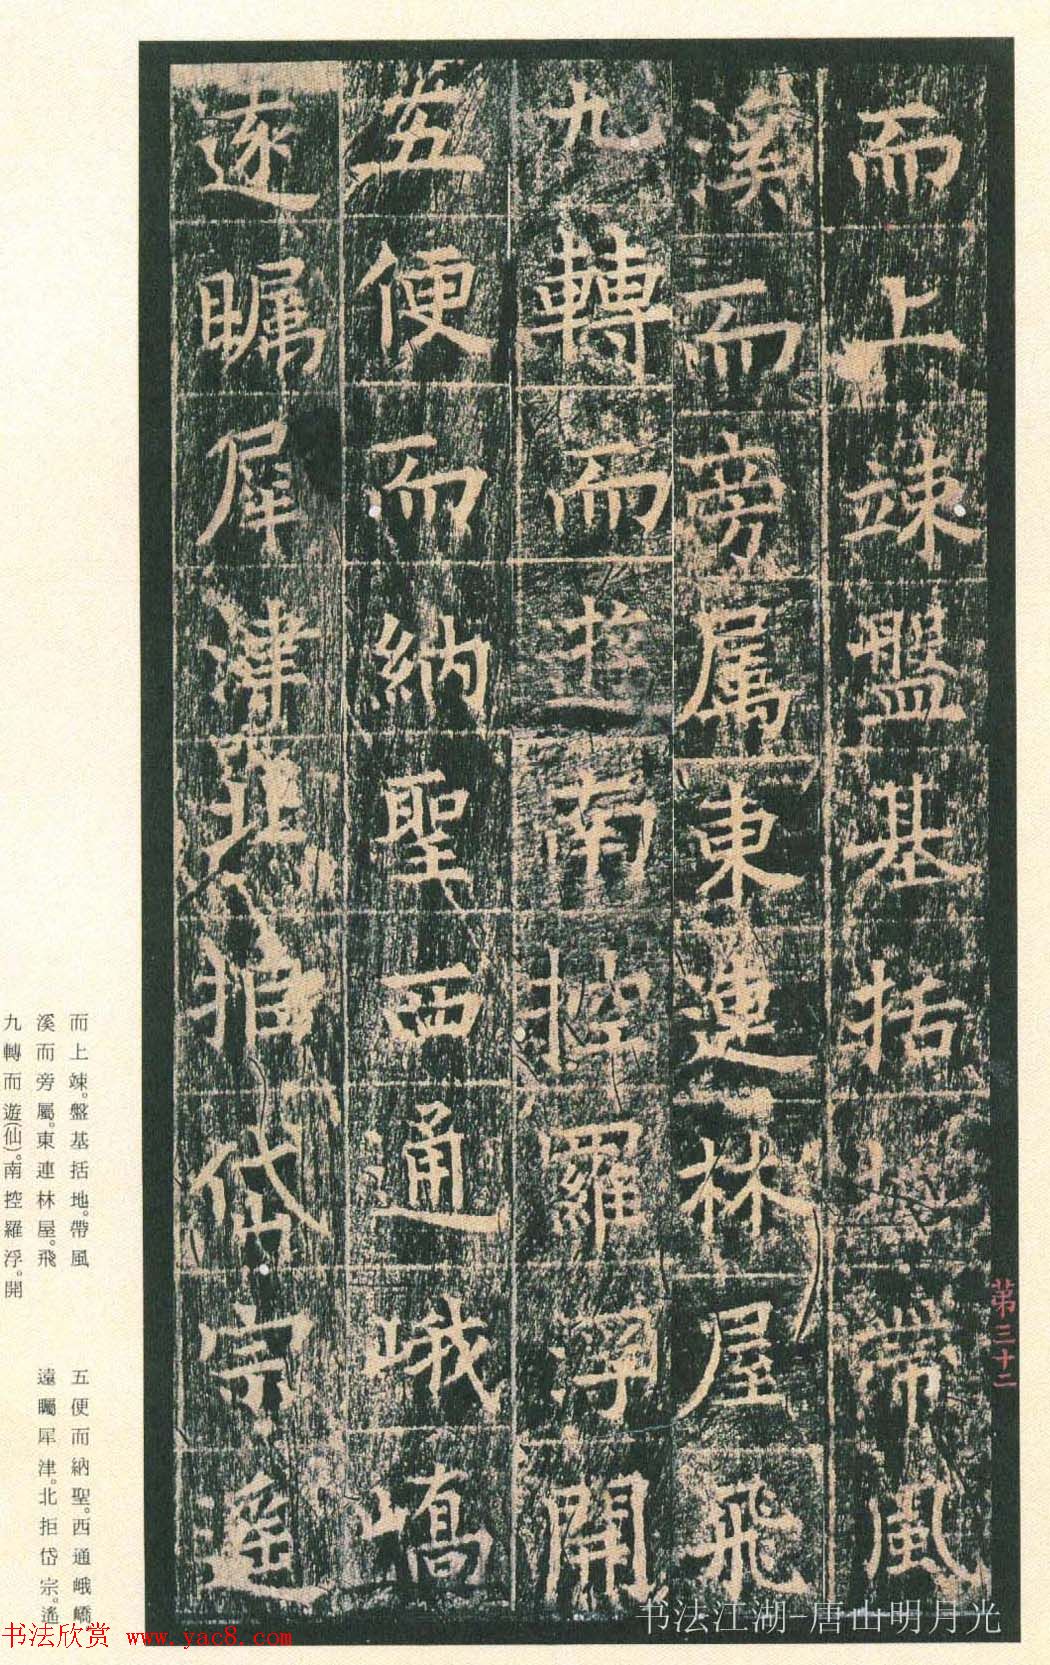 而上竦盤基括地帶風
溪而旁属東連林屋飛
九轉而遊南控羅浮開
五便而納聖西通峨嶠
遠矚犀津北拒岱宗遙
第三十二
而上竦。盤基括地。帶風
溪而旁屬。東連林屋。飛
九轉而遊(仙)。南控羅浮。開
五便而納聖。西通峨嶠。
遠矚犀津。北拒岱宗。遙
书法江湖-唐山明月光
书法欣赏 www.yac8.com